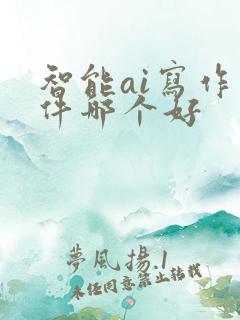 智能ai寫作
件哪个好
夢風揚.1
未任同意禁止转载